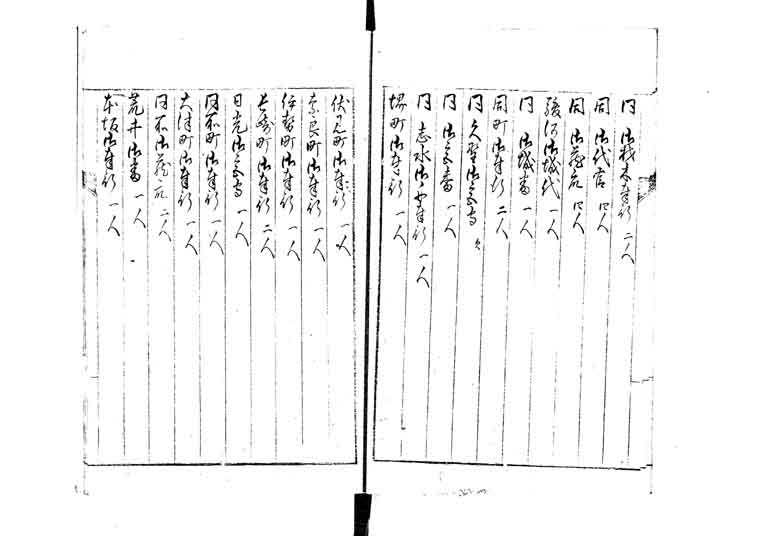 同 御材木奉行 二人
同 御代官 四人
同 御蔵衆 四人
駿河御城代 一人
同 御城番 一人
同町御奉行 二人
同久能御
同 御番 一人
同 志水御奉行 一人
堺町御奉行 一人
伏見町御奉行 一人
奈良町御奉行 一人
伊勢町御奉行 一人
長崎町御奉行 二人
日光御 一人
同所町御奉行 一人
大津町御奉行 一人
同所御蔵衆 二人
荒井御番 一人
本坂御奉行 一人